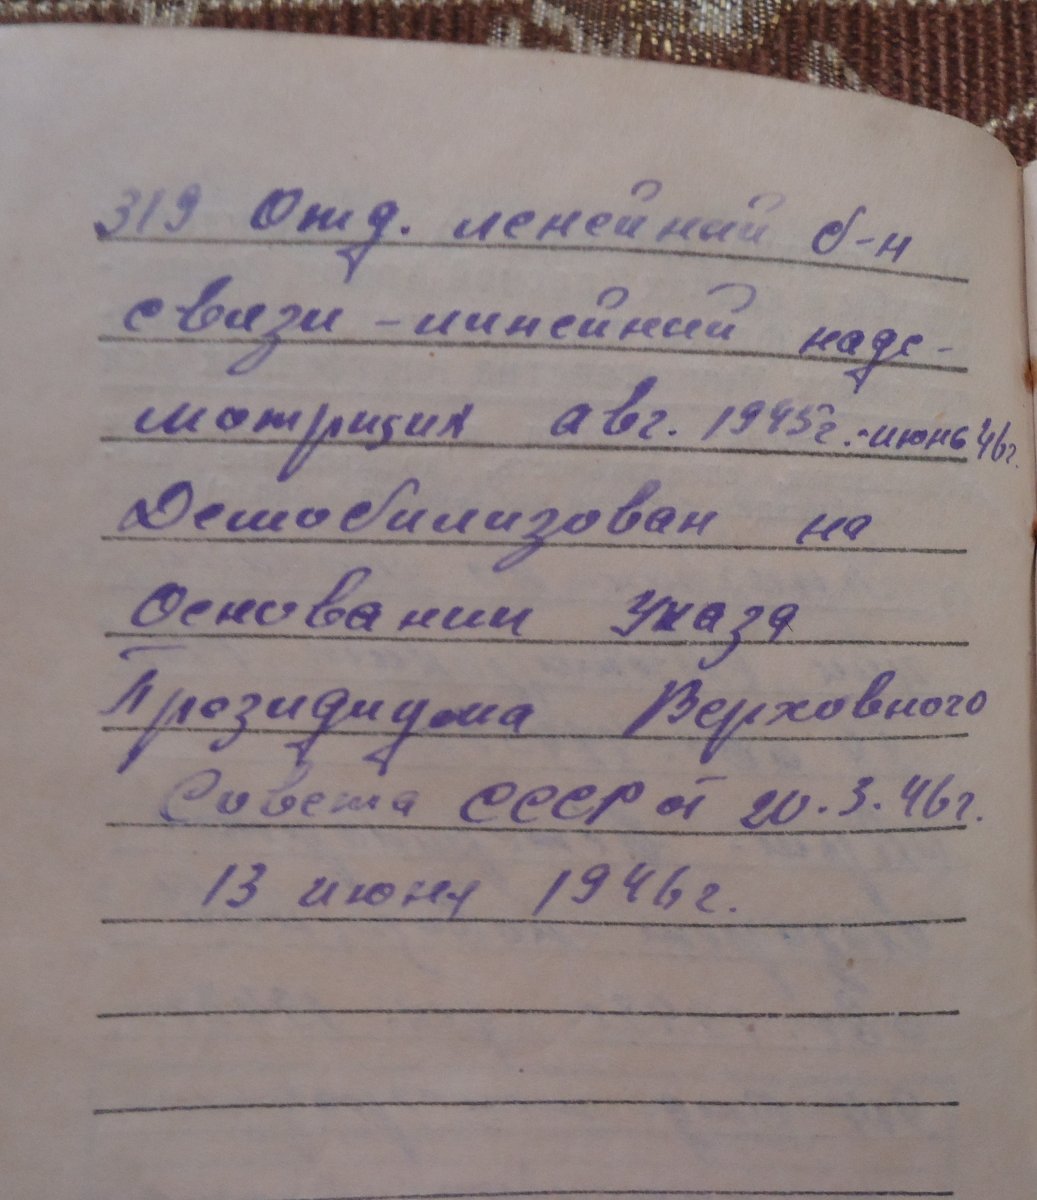 319 Отд. линейный б-н
связи - линейный надс-
мотрщик авг. 1945г. - июнь 46г.
Демобилизован на
основании Указа
Президиума Верховного
Совета СССР от 20.3.46г.
13 июня 1946г.